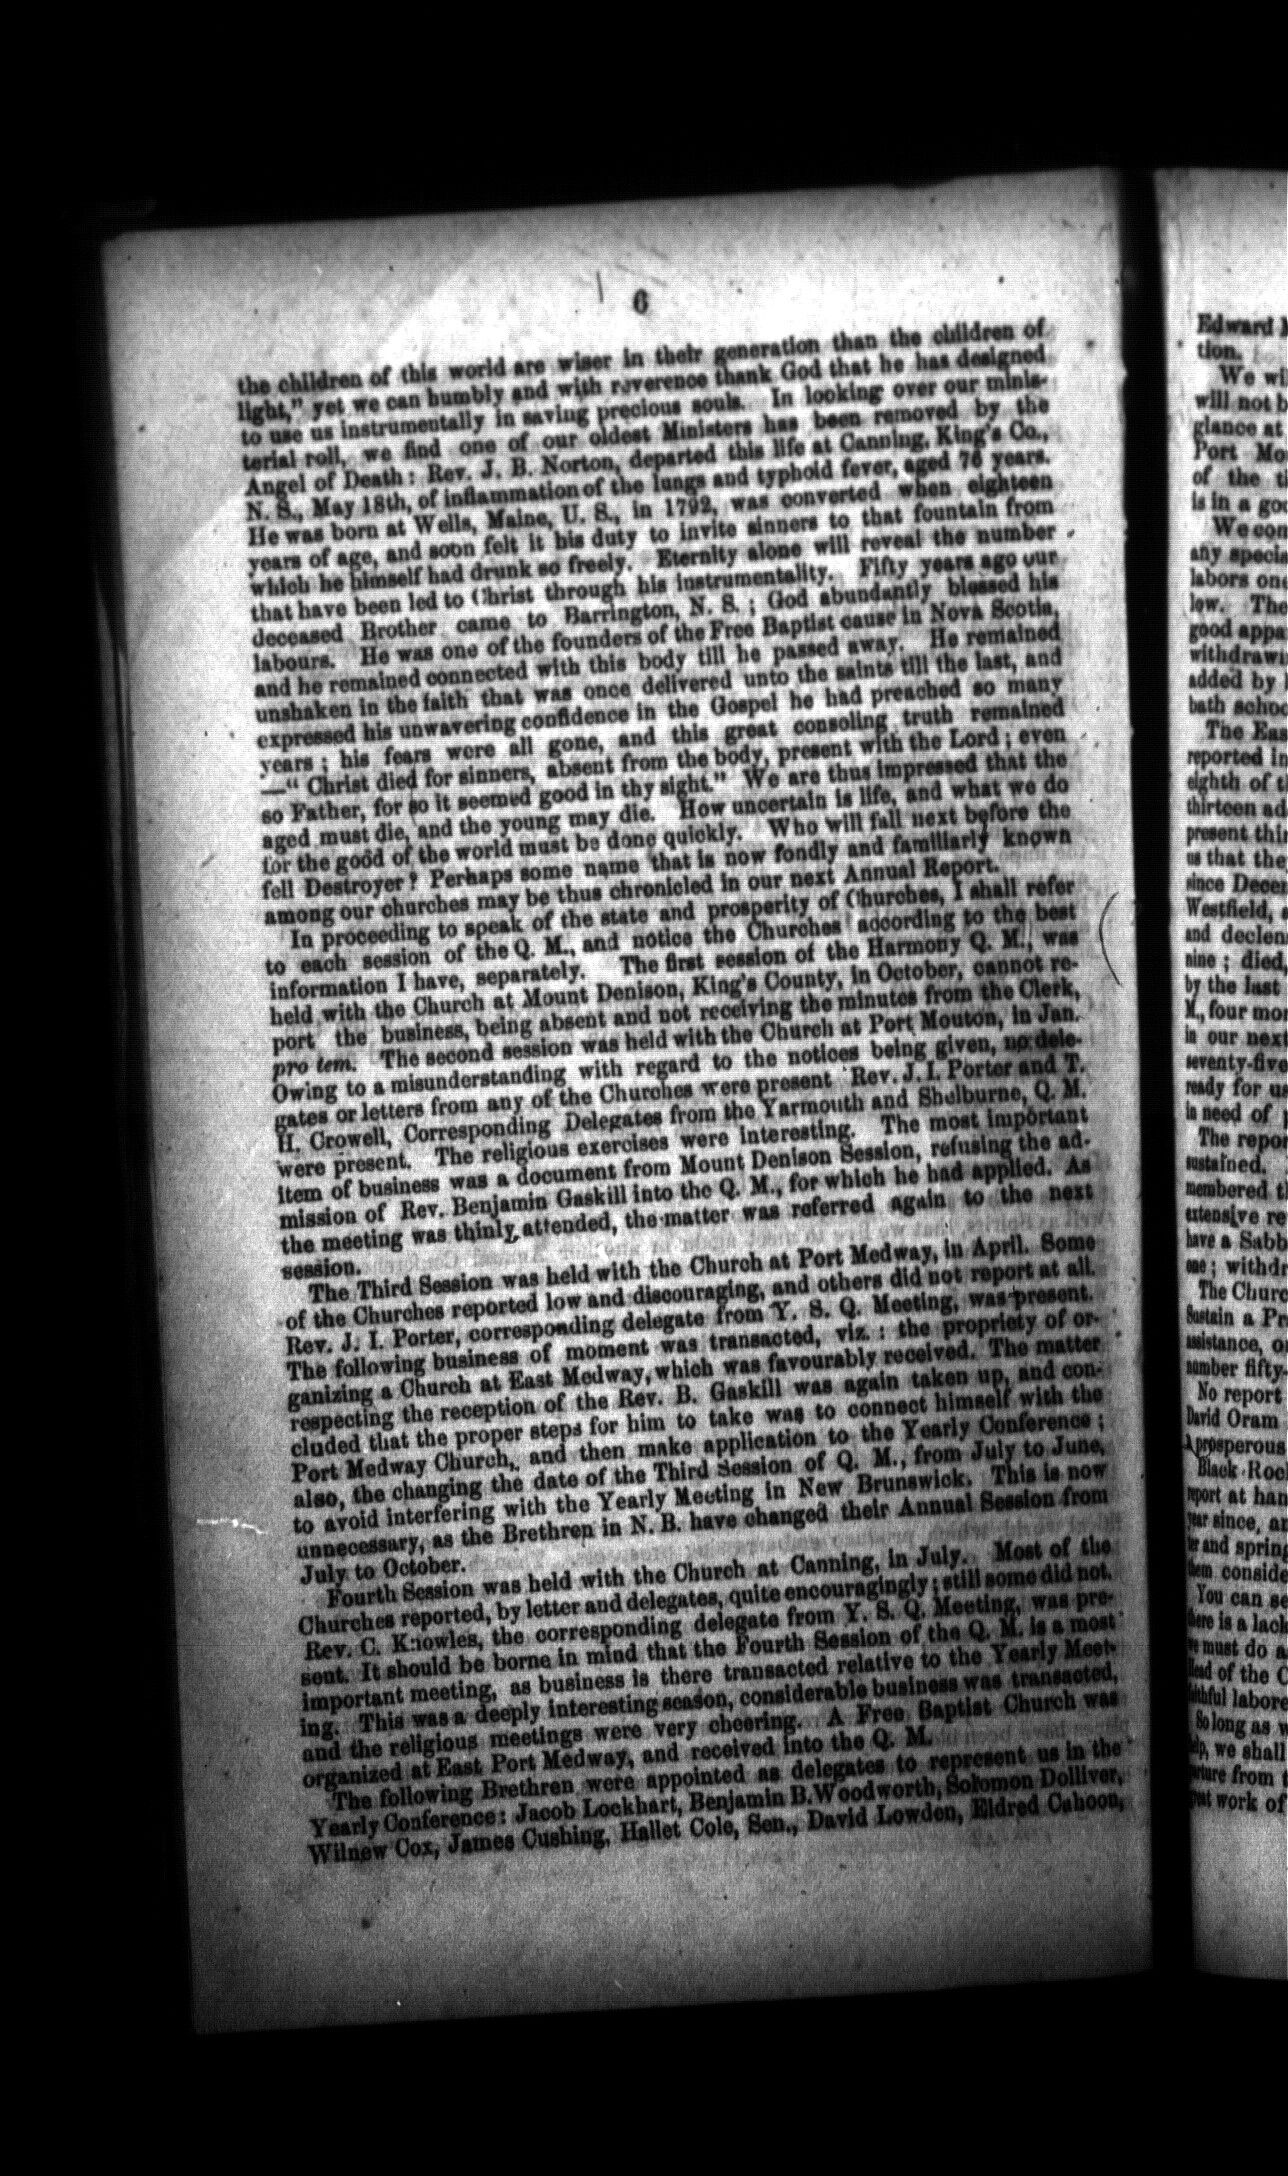 6
the children of this world are wiser in their generation than the children of
light," yet we can humbly and with reverence thank God that he has designed
to use us instrumentally in saving precious souls. In looking over our minis-
terial roll, we find one of our oldest Ministers has been removed by the
Angel of Death: Rev. J. B. Norton, departed this life at Canning, King's Co.,
N. S., May 18th, of inflammation of the lungs and typhoid fever, aged 76 years.
He was born at Wells, Maine, U. S., in 1792, was converted when eighteen
years of age, and soon felt it his duty to invite sinners to that fountain from
which he himself had drunk so freely. Eternity alone will reveal the number
that have been led to Christ through his instrumentality. Fifty years ago our
deceased Brother came to Barrington, N. S.; God abundantly blessed his
labours. He was one of the founders of the Free Baptist cause in Nova Scotia,
and he remained connected with this body till he passed away. He remained
unshaken in the faith that was once delivered unto the saints till the last, and
expressed his unwavering confidence in the Gospel he had preached so many
years; his fears were all gone, and this great consoling truth remained
—"Christ died for sinners, absent from the body, present with the Lord; even
so Father, for so it seemed good in thy sight." We are thus impressed that the
aged must die, and the young may die. How uncertain is life, and what we do
for the good of the world must be done quickly. Who will fall next before the
fell Destroyer? Perhaps some name that is now fondly and familiarly known
among our churches may be thus chronicled in our next Annual Report.
In proceeding to speak of the state and prosperity of Churches, I shall refer
to each session of the Q. M., and notice the Churches according to the best
information I have, separately. The first session of the Harmony Q. M., was
held with the Church at Mount Denison, King's County, in October, cannot re-
port the business, being absent and not receiving the minutes from the Clerk,
pro tem. The second session was held with the Church at Port Mouton, in Jan.
Owing to a misunderstanding with regard to the notices being given, no dele-
gates or letters from any of the Churches were present Rev. J. I. Porter and T.
H. Crowell, Corresponding Delegates from the Yarmouth and Shelburne, Q. M.
were present. The religious exercises were interesting. The most important
item of business was a document from Mount Denison Session, refusing the ad-
mission of Rev. Benjamin Gaskill into the Q. M., for which he had applied. As
the meeting was thinly attended, the matter was referred again to the next
session.
The Third Session was held with the Church at Port Medway, in April. Some
of the Churches reported low and discouraging, and others did not report at all.
Rev. J. I. Porter, corresponding delegate from Y. S. Q. Meeting, was present.
The following business of moment was transacted, viz.: the propriety of or-
ganizing a Church at East Medway, which was favourably received. The matter
respecting the reception of the Rev. B. Gaskill was again taken up, and con-
cluded that the proper steps for him to take was to connect himself with the
Port Medway Church, and then make application to the Yearly Conference;
also, the changing the date of the Third Session of Q. M., from July to June,
to avoid interfering with the Yearly Meeting in New Brunswick. This is now
unnecessary, as the Brethren in N. B. have changed their Annual Session from
July to October.
Fourth Session was held with the Church at Canning, in July. Most of the
Churches reported, by letter and delegates, quite encouragingly; still some did not.
Rev. C. Knowles, the corresponding delegate from Y. S. Q. Meeting, was pre-
sent. It should be borne in mind that the Fourth Session of the Q. M. is a most
important meeting, as business is there transacted relative to the Yearly Meet-
ing. This was a deeply interesting season, considerable business was transacted,
and the religious meetings were very cheering. A Free Baptist Church was
organized at East Port Medway, and received into the Q. M.
The following Brethren were appointed as delegates to represent us in the
Yearly Conference: Jacob Lockhart, Benjamin B. Woodworth, Solomon Dolliver,
Wilnew Cox, James Cushing, Hallet Cole, Sen., David Lowden, Eldred Cahoon,
Edward
tion.
We
will not
glance at
Port
of the
is in a
We
any
labors
low. The
good
withdrawn
added by
bath
The
reported in
eighth of
thirteen
present
us that
since
Westfield,
and
nine; died,
by the last
M., four
in our next
seventy-five
ready for
in need of
The
sustained.
membered
extensive
have a
one;
The
Sustain a
assistance,
number fifty-
No report
David Oram
A prosperous
Black Rock
report at
year since,
and
them
You can
there is a
we must do
Head of the
faithful
So long as
help, we shall
from
great work of